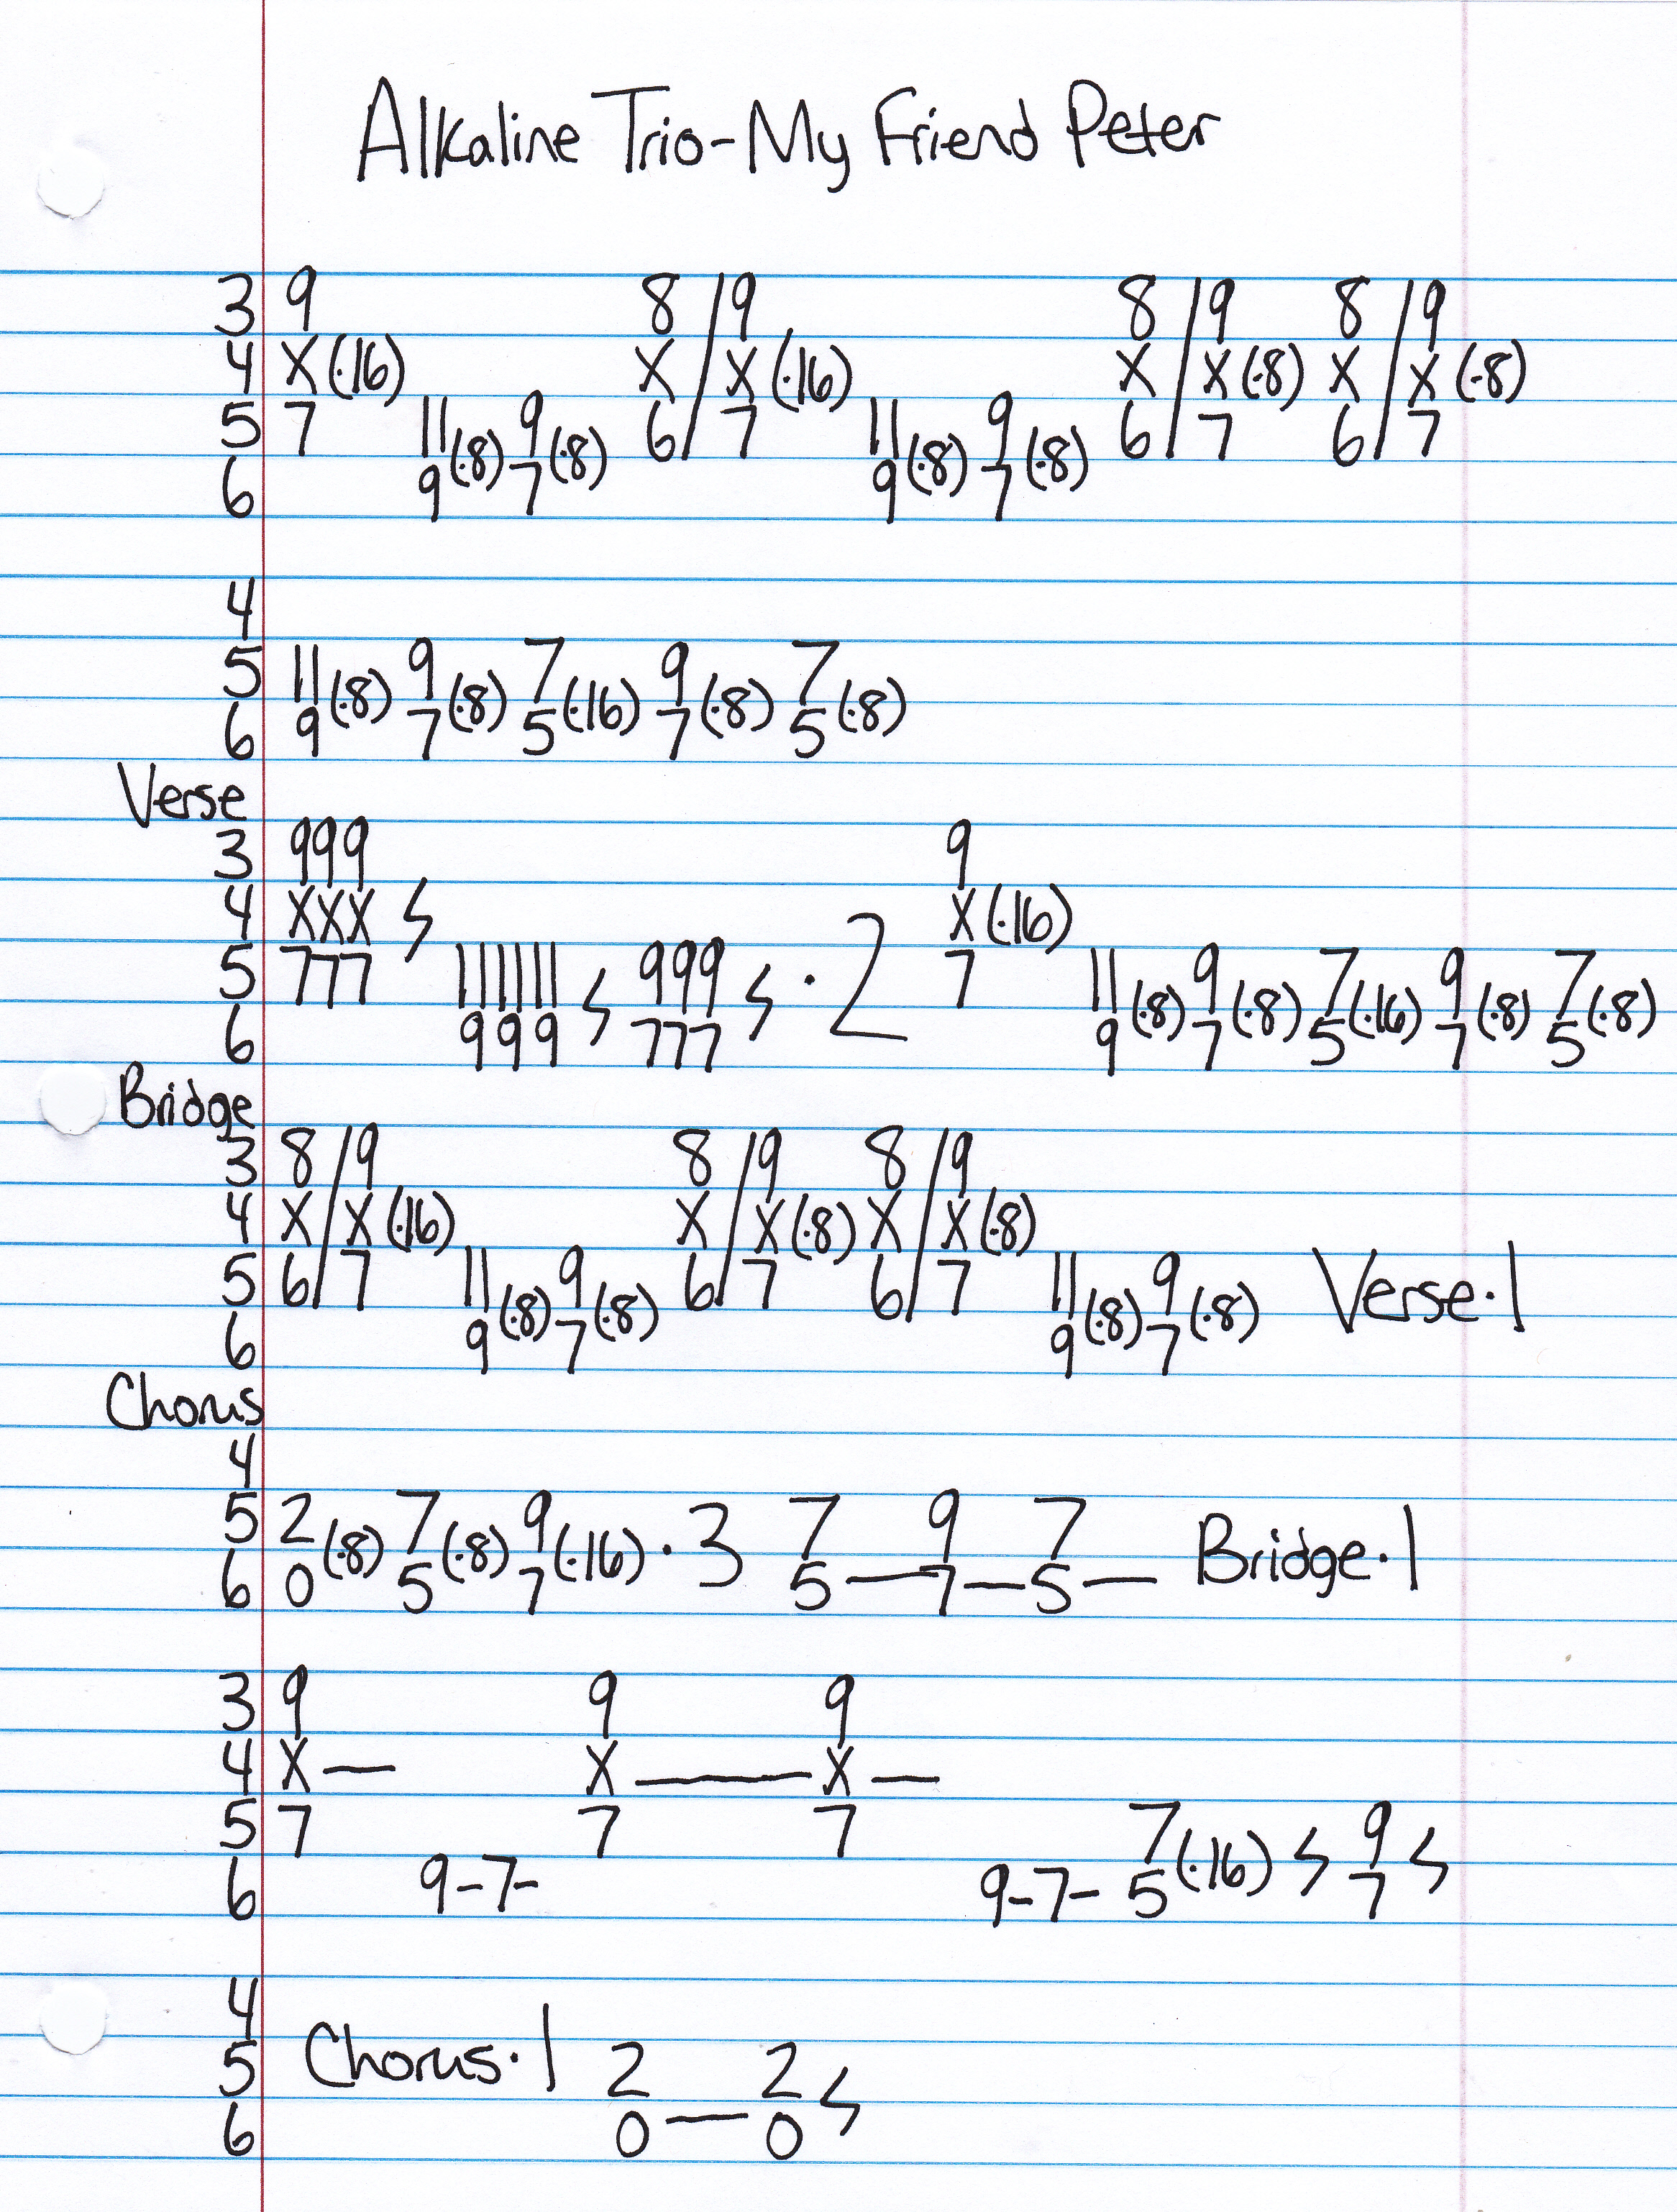 Alkaline Trio-My Friend Peter
3 9 8/9 8/9 8/9
4 X(·16) X/X(·16) X/X(·8) X/X(·8)
5 7 11(·8) 9(·8) 6/7 11(·8) 9(·8) 6/7 6/7
6 9 7 9 7
4
5 11(·8) 9(·8) 7(·16) 9(·8) 7(·8)
6 9 7 5 7 5
Verse
3 999 9
4 XXX X(·16)
5 777 111111 999 ·2 7 11(·8) 9(·8) 7(·16) 9(·8) 7(·8)
6 999 777 9 7 5 7 5
Bridge
3 8/9 8/9 8/9
4 X/X(·16) X/X(·8) X/X(·8)
5 6/7 11(·8) 9(·8) 6/7 6/7 11(·8) 9(·8) Verse·1
6 9 7 9 7
Chorus
4
5 2(·8) 7(·8) 9(·16) ·3 7 9 7 Bridge·1
6 0 5 7 5—7—5—
3 9 9 9
4 X— X——X—
5 7 7 7 7(·16) 9
6 9-7- 9-7- 5 7
4
5 Chorus·1 2 2
6 0—0